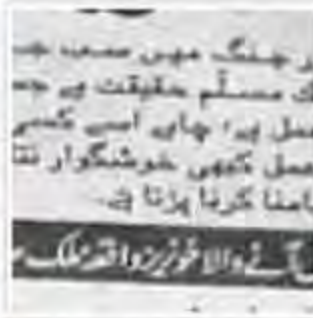 جنگ میں سب
مسلّم حقیقت ہے جس
عمل ہے، چاہے اسے کسی
عمل کبھی خوشگوار نتا
سامنا کرنا پڑتا ہے۔
آنے والا خونریز واقعہ ملک